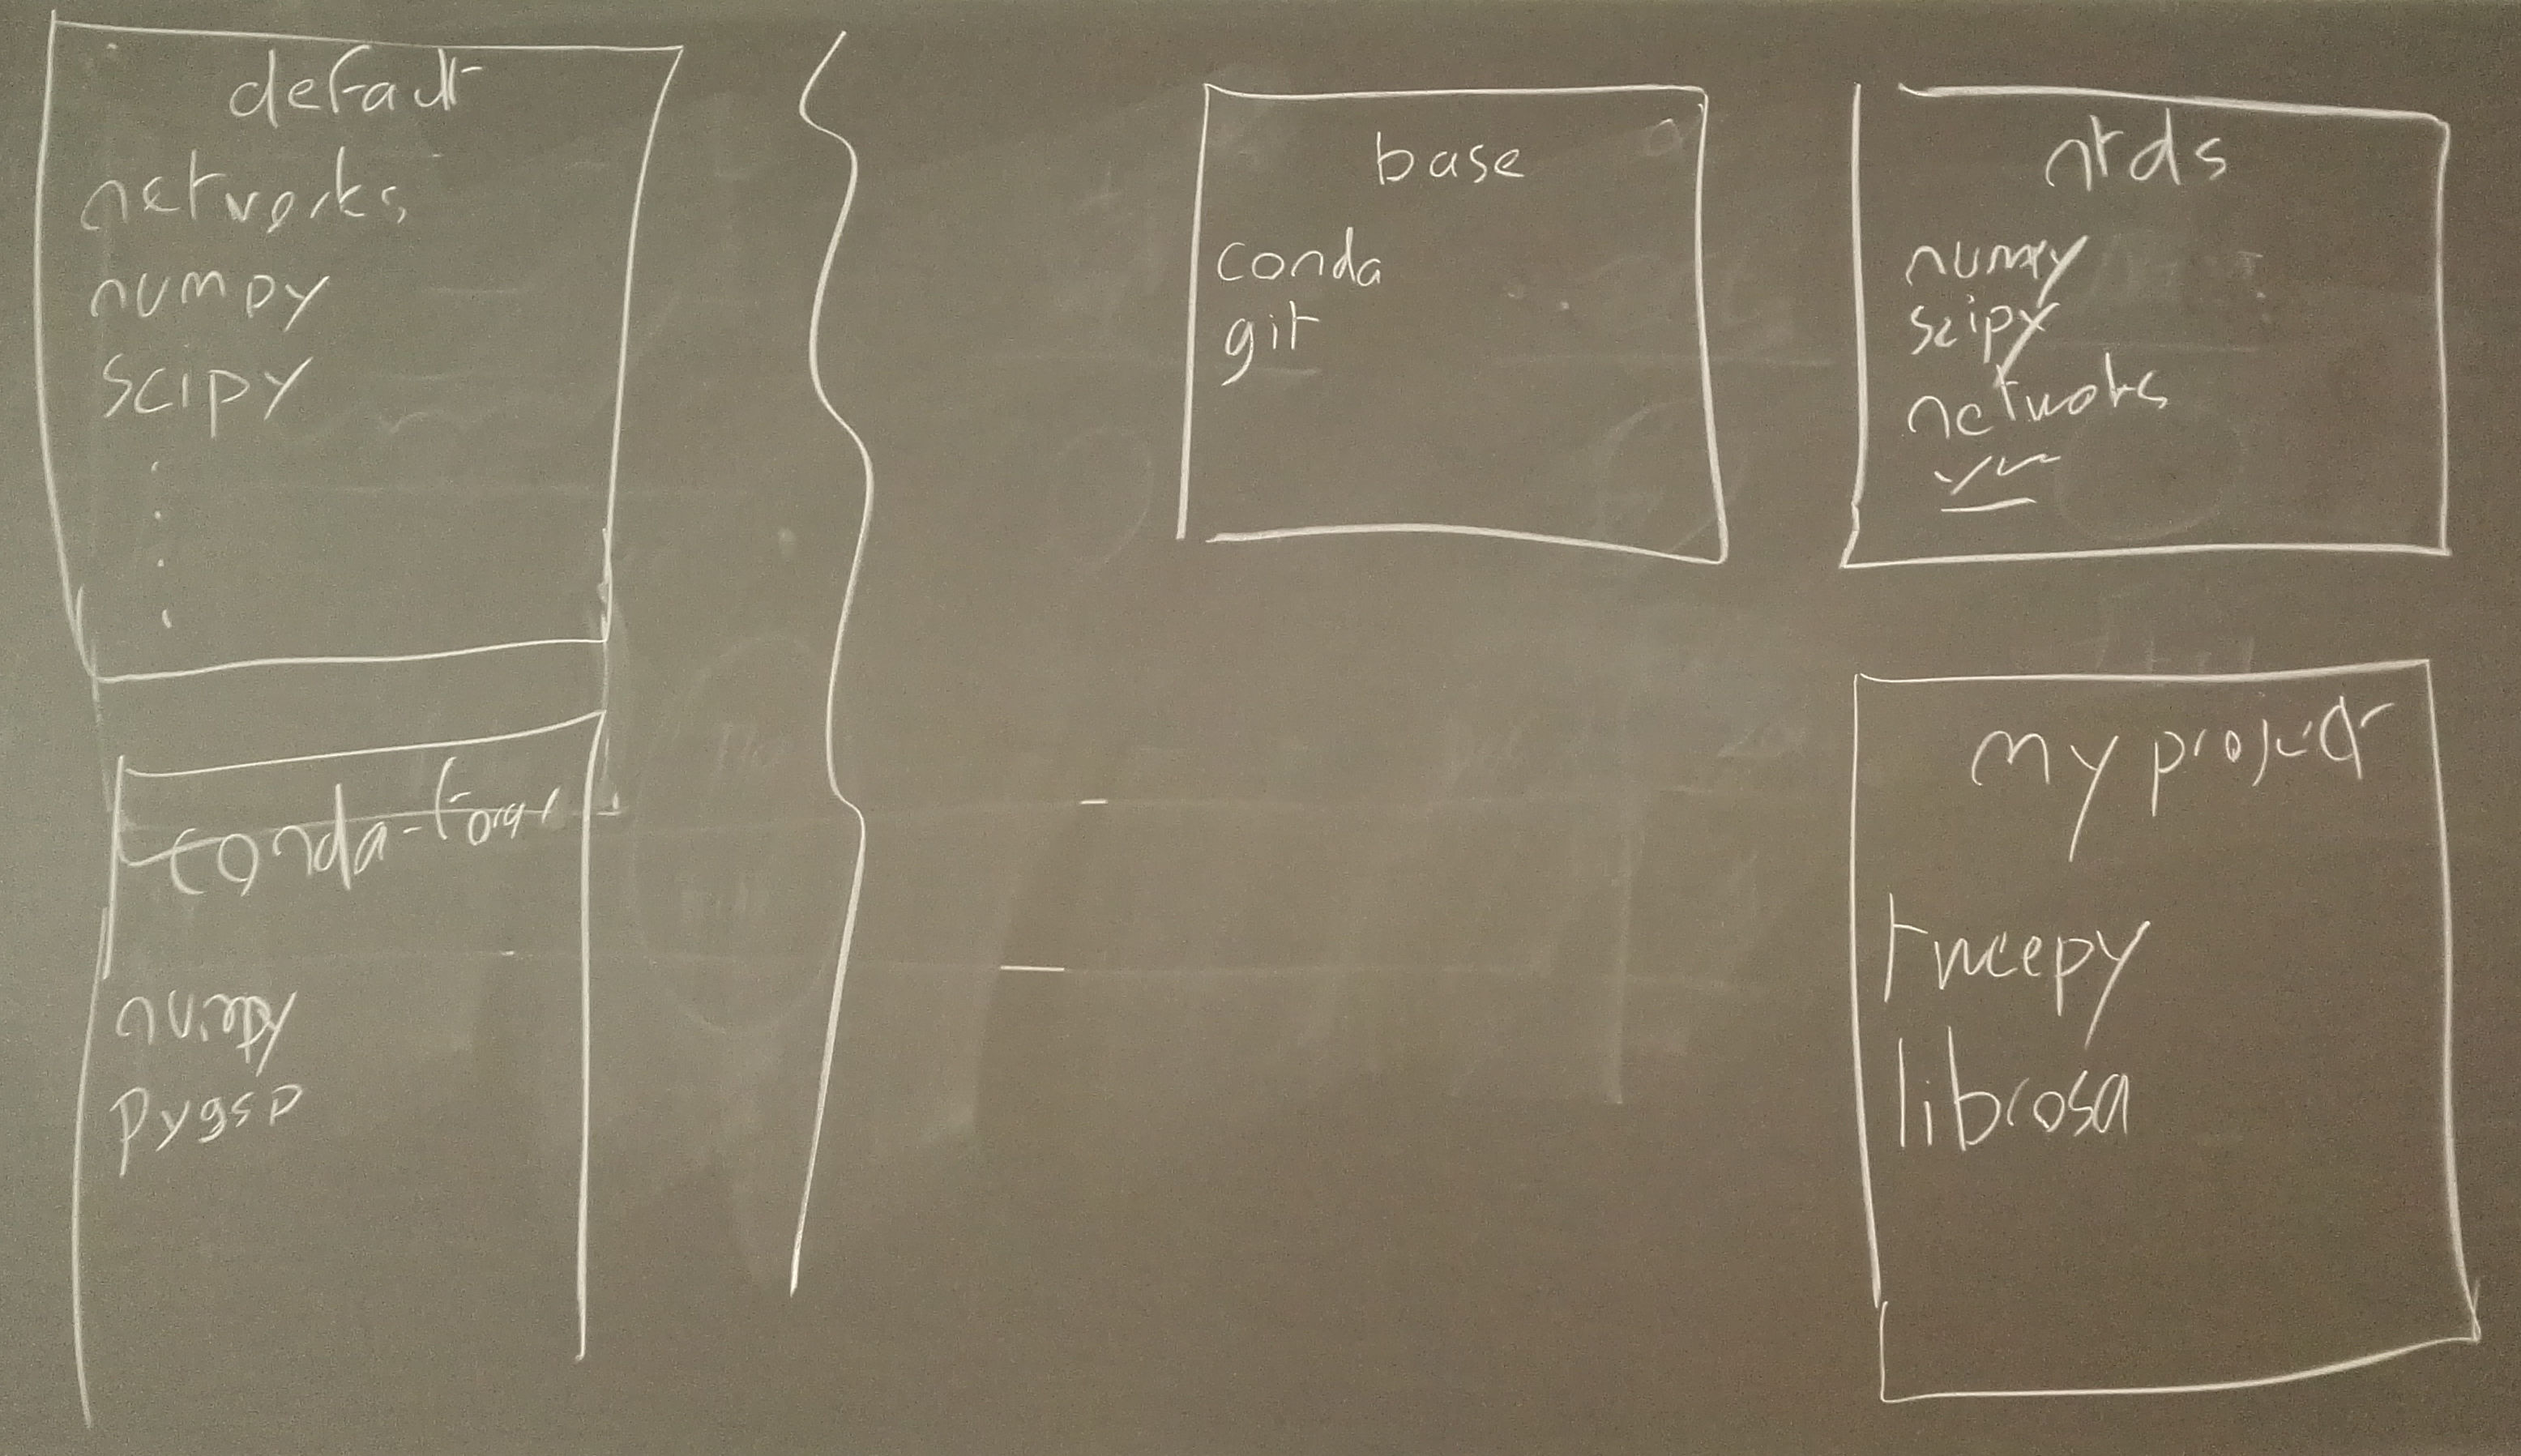 default
networks
numpy
scipy
conda-forge
numpy
pygsp
base
conda
git
ntds
numpy
scipy
networks
my project
tweepy
librosa